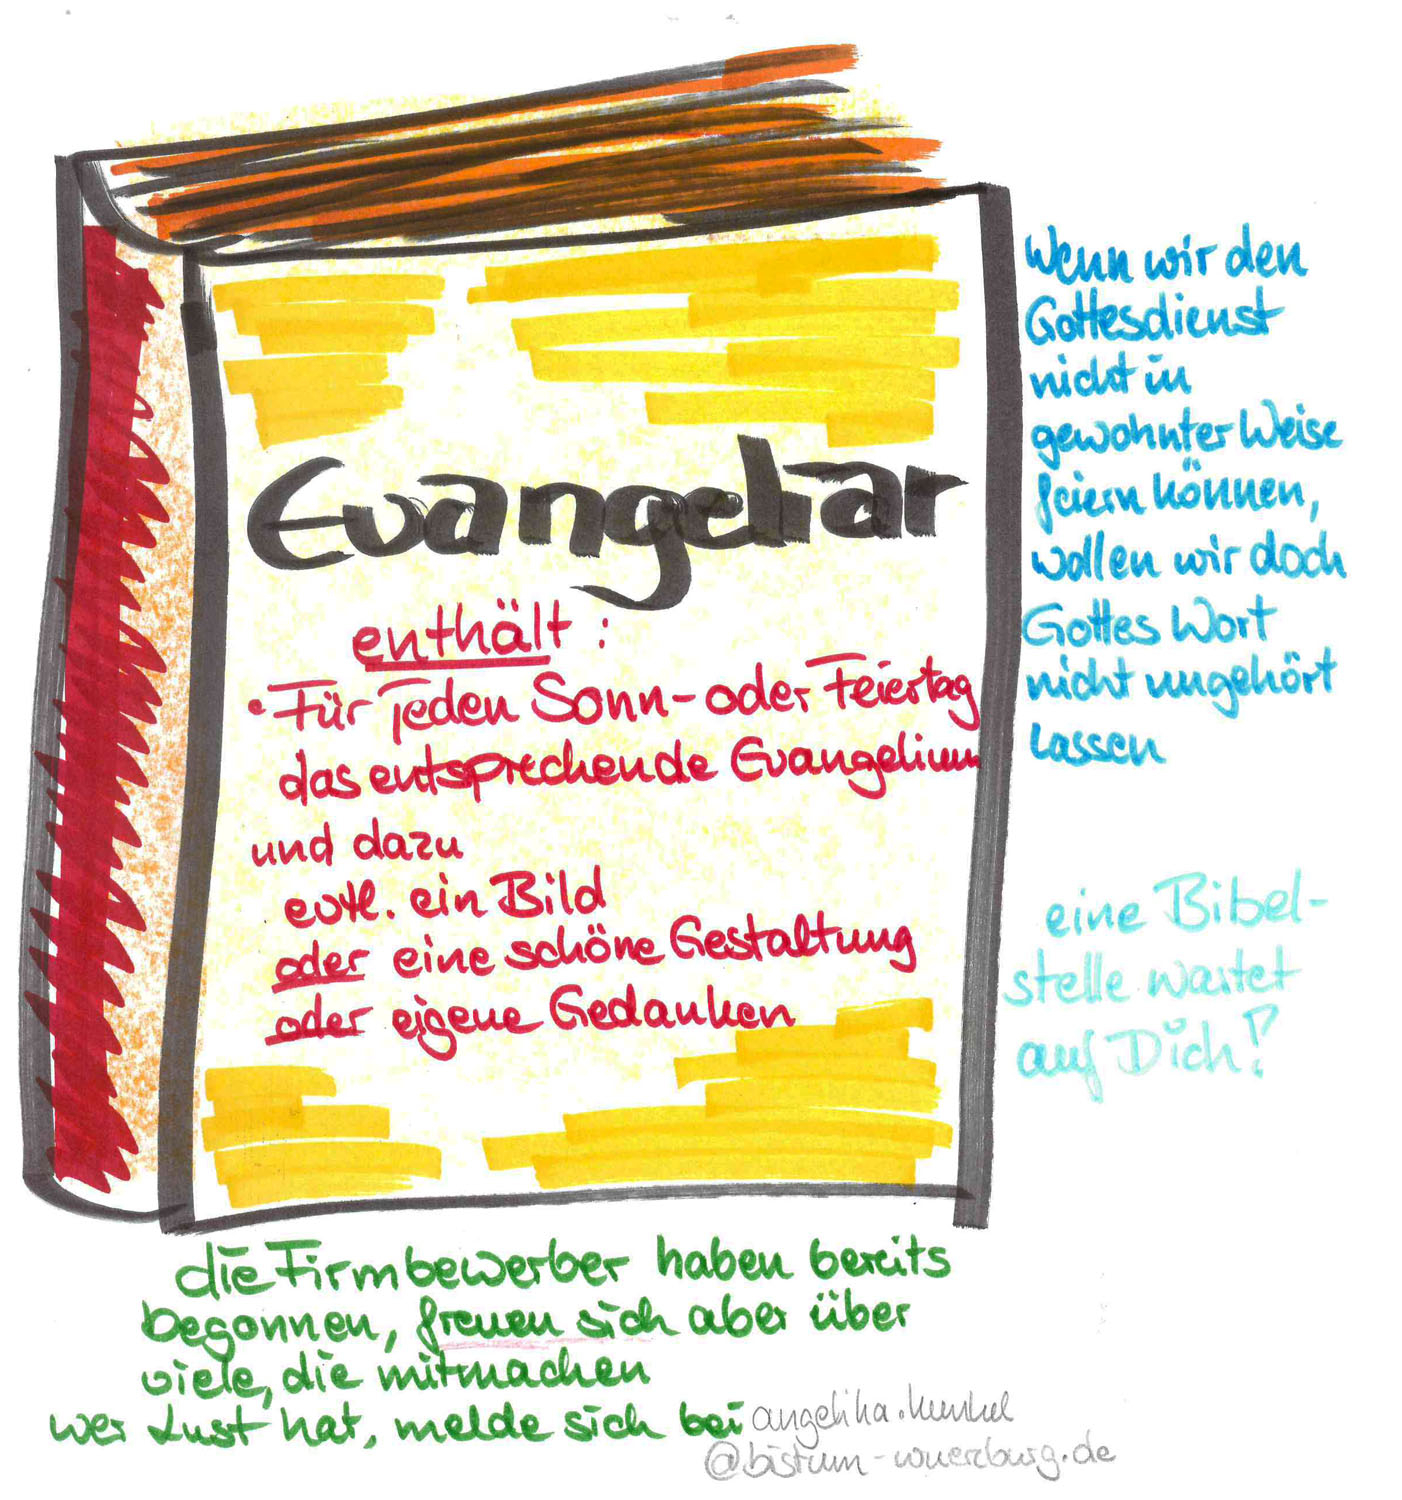 Evangeliar
enthält:
• Für jeden Sonn- oder Feiertag
das entsprechende Evangelium
und dazu
evtl. ein Bild
oder eine schöne Gestaltung
oder eigene Gedanken
Wenn wir den
Gottesdienst
nicht in
gewohnter Weise
feiern können,
wollen wir doch
Gottes Wort
nicht ungehört
lassen
eine Bibel-
stelle wartet
auf Dich!
die Firmbewerber haben bereits
begonnen, freuen sich aber über
viele, die mitmachen
wer Lust hat, melde sich bei angelika.kunkel
@bistum-wuerzburg.de